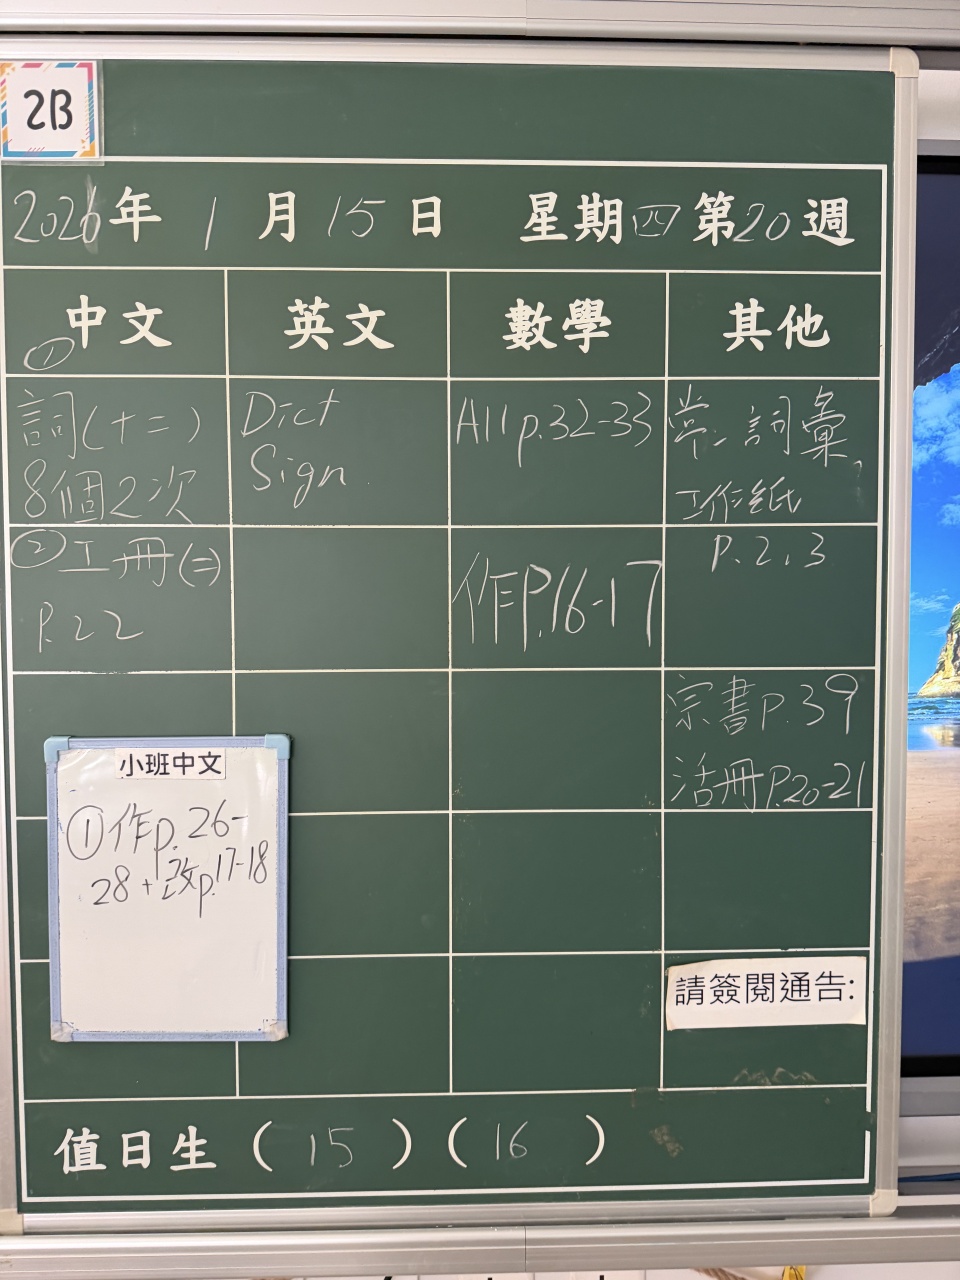 2B
2026年 1月 15日 星期四 第20週
中文 英文 數學 其他
①
詞(十二)
8個2次
②工冊(二)
P.22
Dict
Sign.
A11 p.32-33
作P.16-17
常-詞彙,
工作紙
P.2,3
宗書P.39
活冊P.20-21
小班中文
①作p.26-
28+改p.17-18
請簽閱通告:
值日生 (15) (16)